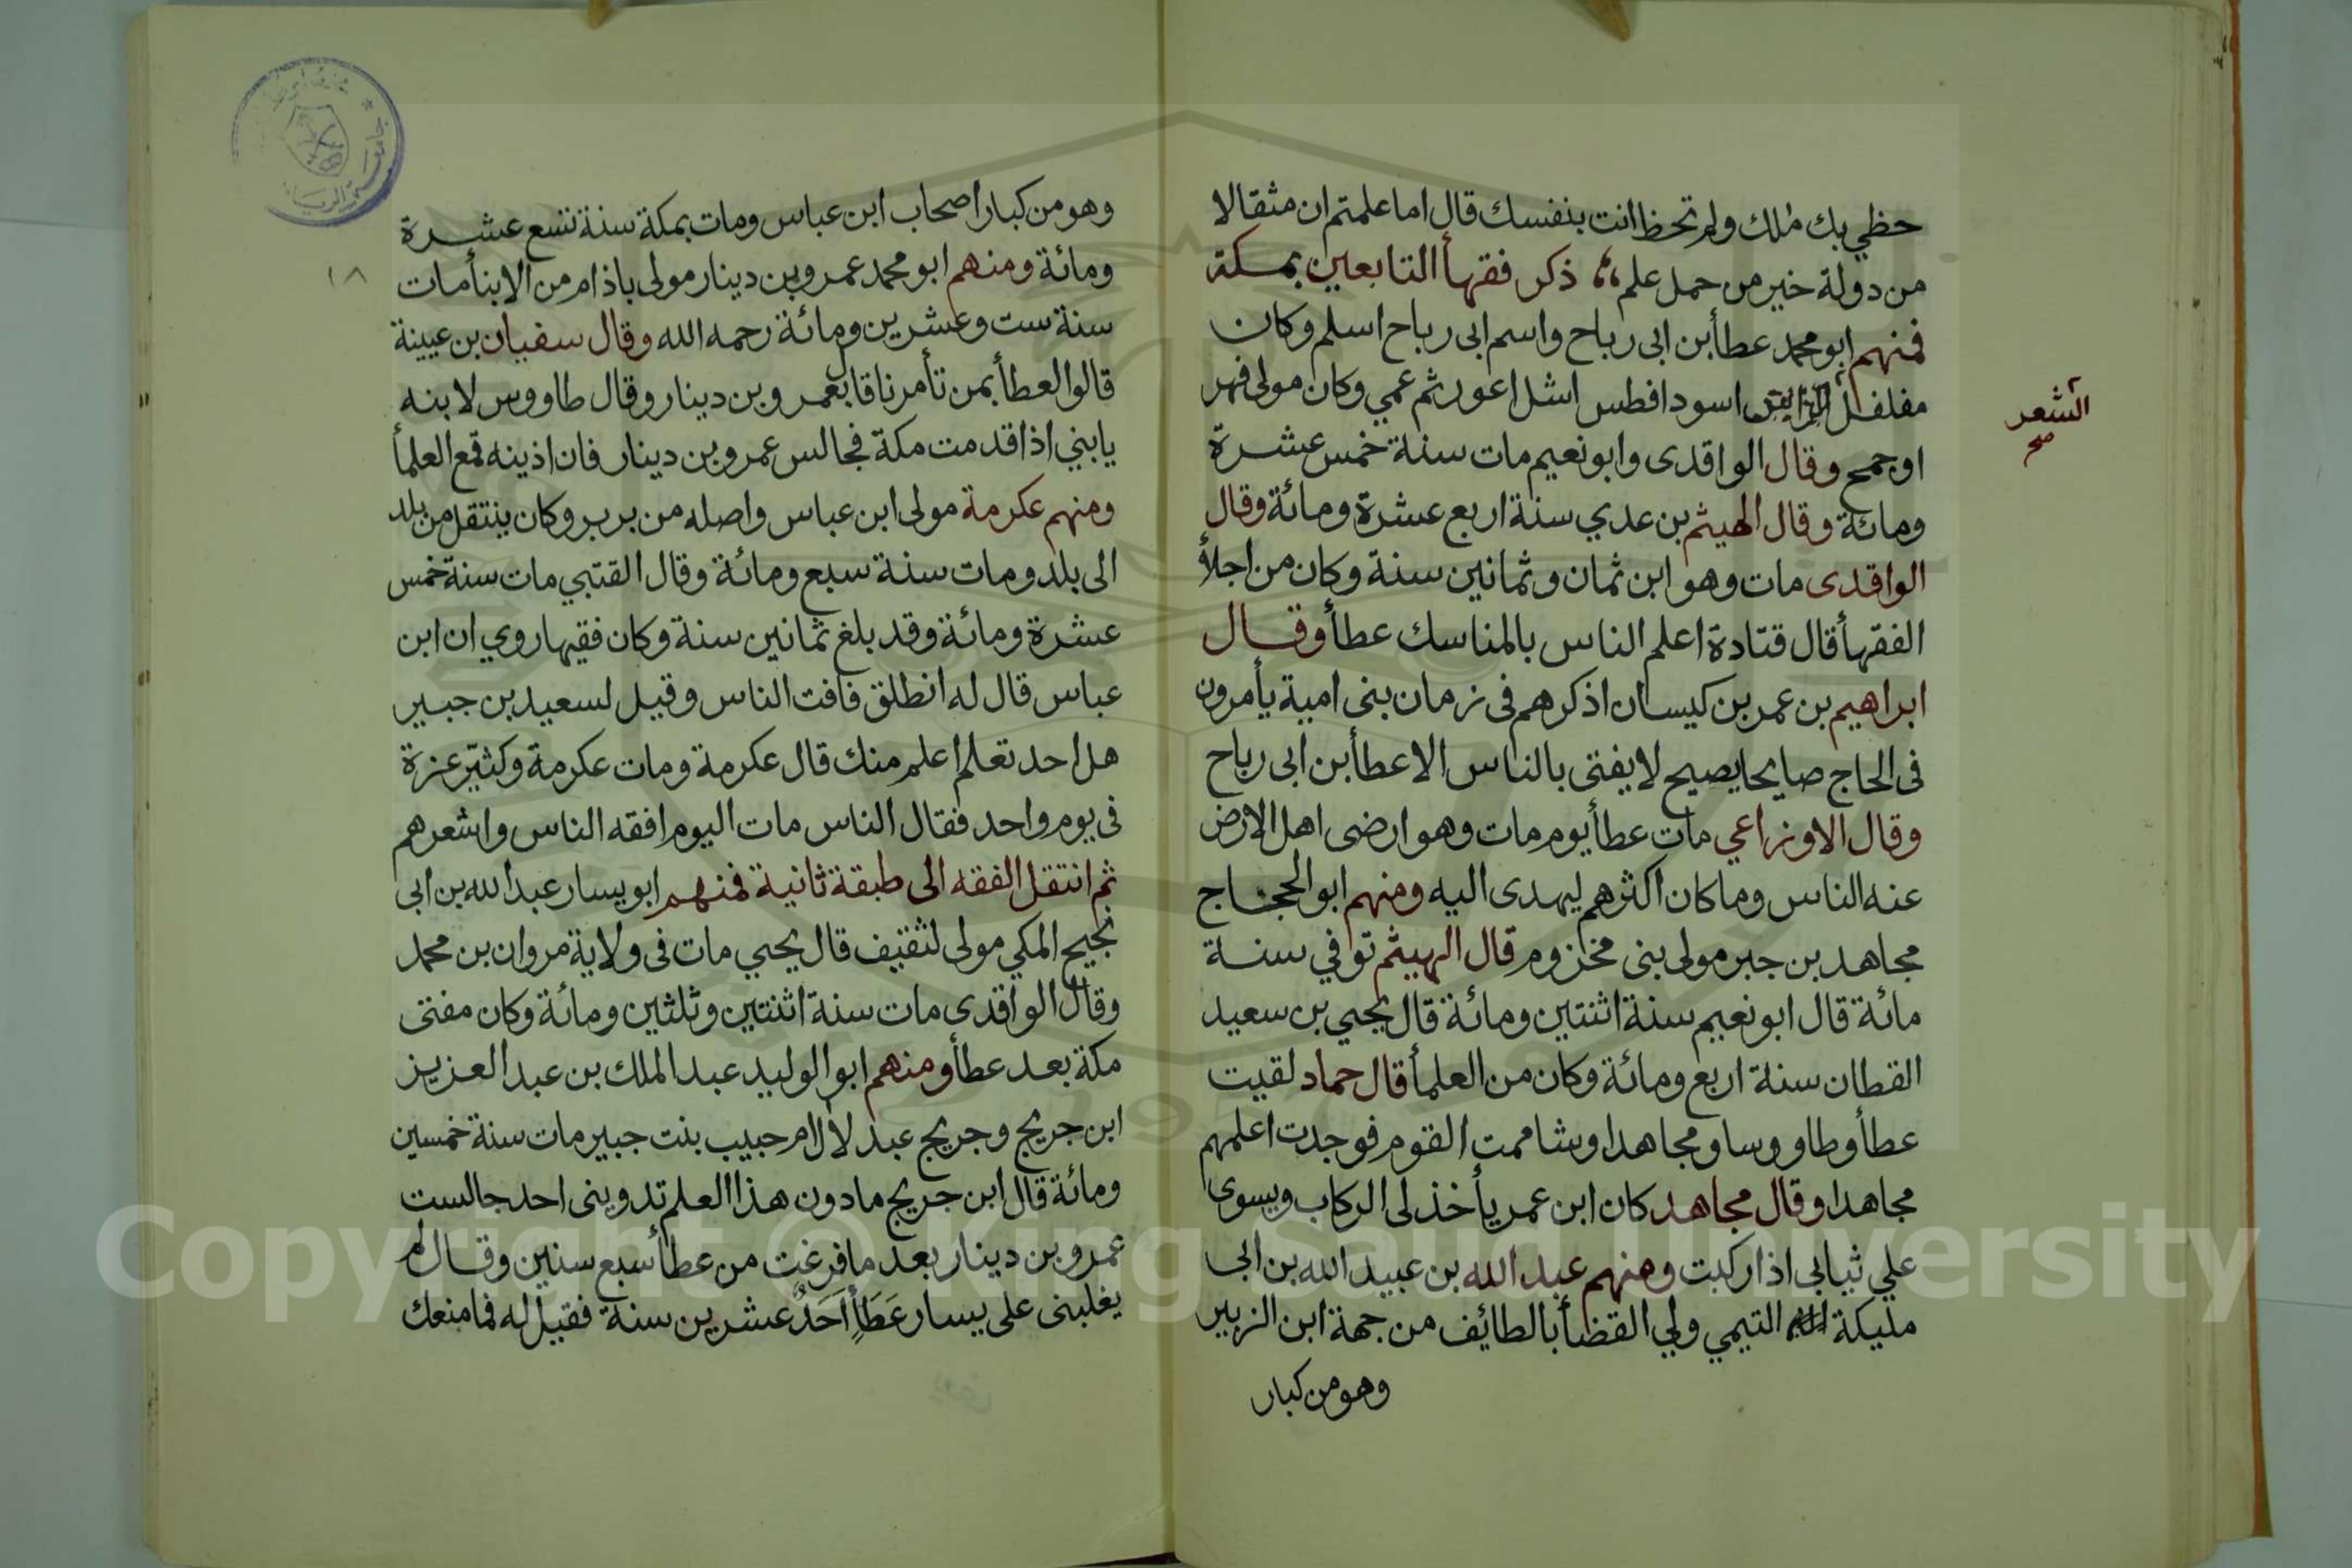 حظي بك ملك ولم تحظ انت بنفسك قال اما علمتم ان مثقالا
من دولة خير من حمل علم ذكر فقهأ التابعين بمكة
فمنهم ابو محمد عطأ بن ابى رباح واسم ابى رباح اسلم وكان
مفلفل اسود افطس اشل اعور ثم عمي وكان مولى فهر
الشعر
صح
او جمح وقال الواقدى وابو نعيم مات سنة خمس عشرة
ومائة وقال الهيثم بن عدي سنة اربع عشرة ومائة وقال
الواقدى مات وهو ابن ثمان وثمانين سنة وكان من اجلأ
الفقهأ قال قتادة اعلم الناس بالمناسك عطأ وقال
ابراهيم بن عمر بن كيسان اذكرهم فى زمان بنى امية يأمرون
فى الحاج صايحا يصيح لا يفتى بالناس الا عطأ بن ابى رباح
وقال الاوزراعي مات عطأ يوم مات وهو ارضى اهل الارض
عنه الناس وما كان اكثرهم ليهدى اليه ومنهم ابو الحجاج
مجاهد بن جبر مولى بنى مخزوم قال الهيثم توفي سنة
مائة قال ابو نعيم سنة اثنتين ومائة قال يحيي بن سعيد
القطان سنة اربع ومائة وكان من العلمأ قال حماد لقيت
عطأ وطاووسا ومجاهدا وشاممت القوم فوجدت اعلمهم
مجاهدا وقال مجاهد كان ابن عمر يأخذ لى الركاب ويسوى
علي ثيابى اذا ركبت ومنهم عبد الله بن عبيد الله بن ابى
مليكة التيمي ولي القضأ بالطائف من جهة ابن الزبير
وهو من كبار
وهو من كبار اصحاب ابن عباس ومات بمكة سنة تسع عشرة
١٨
ومائة ومنهم ابو محمد عمرو بن دينار مولى باذام من الابنأ مات
سنة ست وعشرين ومائة رحمه الله وقال سفيان بن عيينة
قالوا لعطأ بمن تأمرنا قال بعمرو بن دينار وقال طاووس لابنه
يابني اذا قدمت مكة فجالس عمرو بن دينار فان اذينه قمع العلمأ
ومنهم عكرمة مولى ابن عباس واصله من بربر وكان ينتقل من بلد
الى بلد ومات سنة سبع ومائة وقال القتبي مات سنة خمس
عشرة ومائة وقد بلغ ثمانين سنة وكان فقيها روي ان ابن
عباس قال له انطلق فافت الناس وقيل لسعيد بن جبير
هل احد تعلم اعلم منك قال عكرمة ومات عكرمة وكثير عزة
فى يوم واحد فقال الناس مات اليوم افقه الناس واشعرهم
ثم انتقل الفقه الى طبقة ثانية فمنهم ابو يسار عبد الله بن ابى
نجيح المكي مولى لثقيف قال يحيي مات فى ولاية مروان بن محمد
وقال الواقدى مات سنة اثنتين وثلثين ومائة وكان مفتى
مكة بعد عطأ ومنهم ابو الوليد عبد الملك بن عبد العزيز
ابن جريج وجريج عبد لال ام حبيب بنت جبير مات سنة خمسين
ومائة قال ابن جريج ما دون هذا العلم تدوينى احد جالست
عمرو بن دينار بعد ما فرغت من عطأ سبع سنين وقال لم
يغلبنى على يسار عَطَأٍ اَحَدٌ عشرين سنة فقيل له فما منعك
Copyright © King Saud University